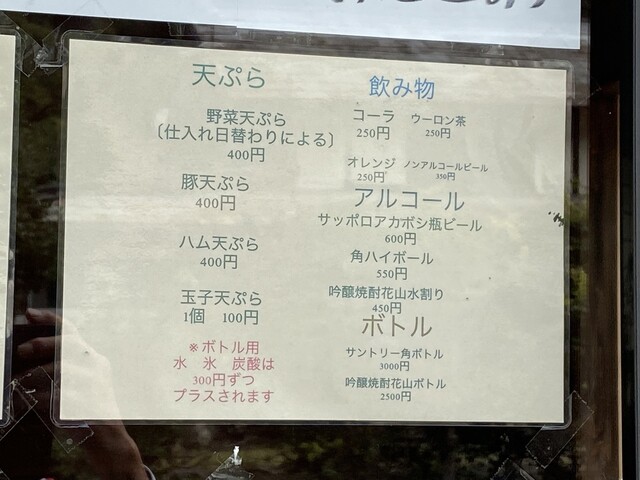 天ぷら
野菜天ぷら
〔仕入れ日替わりによる〕
400円
豚天ぷら
400円
ハム天ぷら
400円
玉子天ぷら
1個 100円
※ボトル用
水 氷 炭酸は
300円ずつ
プラスされます
飲み物
コーラ ウーロン茶
250円 250円
オレンジ ノンアルコールビール
250円 350円
アルコール
サッポロアカボシ瓶ビール
600円
角ハイボール
550円
吟醸焼酎花山水割り
450円
ボトル
サントリー角ボトル
3000円
吟醸焼酎花山ボトル
2500円